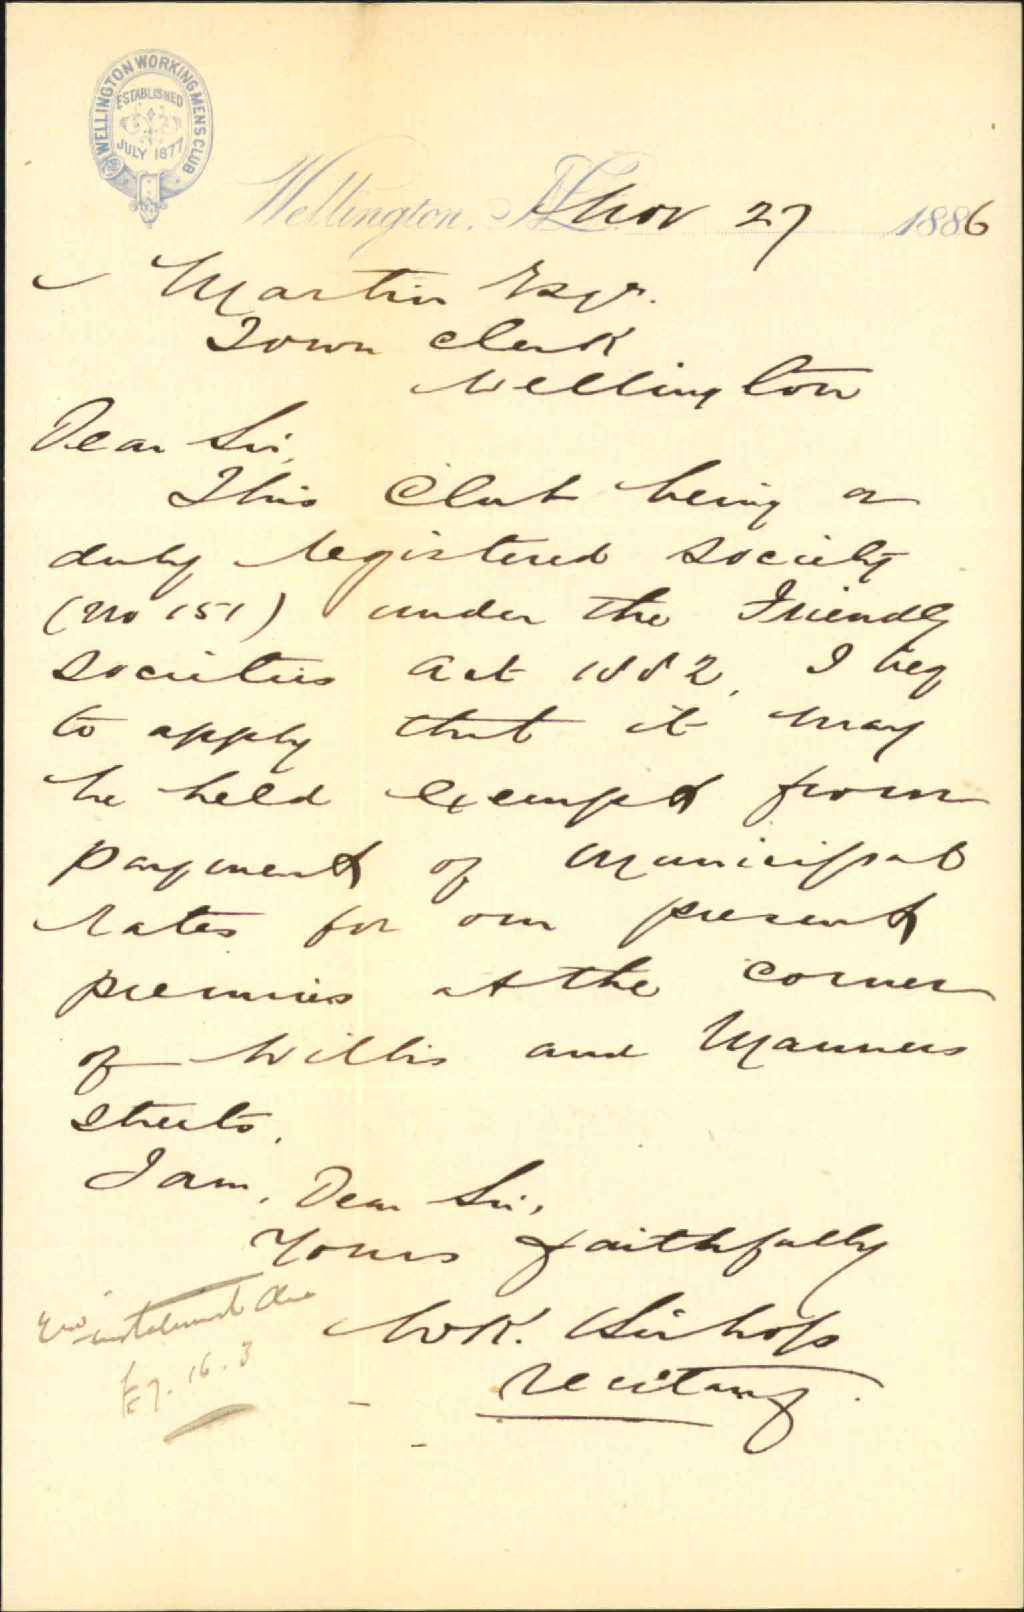 WELLINGTON WORKING MEN'S CLUB
ESTABLISHED
JULY 1877
Wellington, N.Z. Nov 27 1886
Martin Esqr.
Town Clerk
Wellington
Dear Sir,
This Club being a
duly registered society
(No 151) under the Friendly
Societies Act 1882, I beg
to apply that it may
be held exempt from
payment of Municipal
rates for our present
premises at the corner
of Willis and Manners
streets.
I am, Dear Sir,
Yours faithfully
W K. Bishop
Secretary.
instalment due
£7. 16. 3